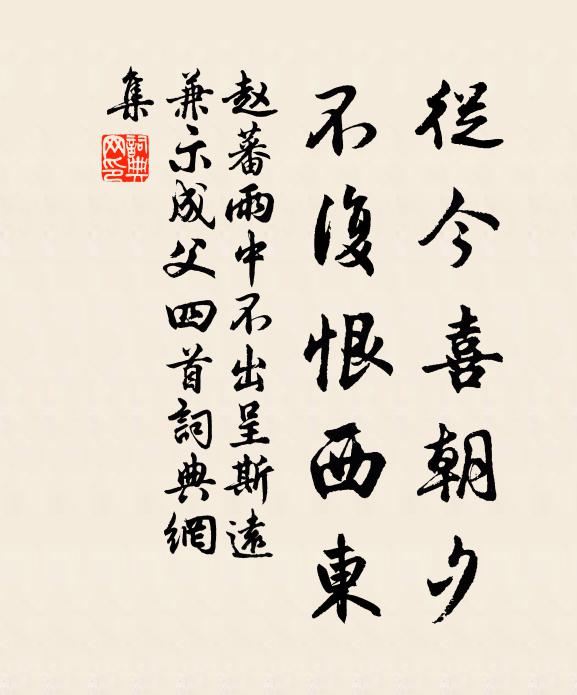 從今喜朝夕
不復恨西東
赵蕃雨中不出呈斯遠
兼示成父四首詞典網
集
詞典網印